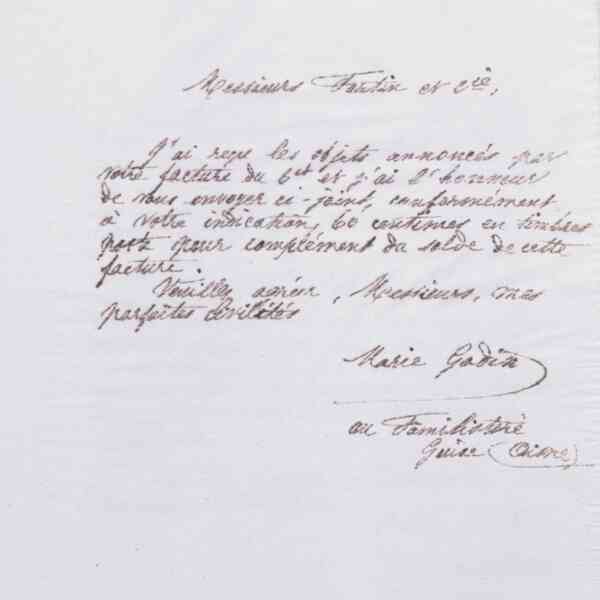 Messieurs Fantin et Cie,
J'ai reçu les objets annoncés par
votre facture du 6 ct et j'ai l'honneur
de vous envoyer ci-joint, conformément
à votre indication, 60 centimes en timbres
poste pour complément du solde de cette
facture.
Veuillez agréer, Messieurs, mes
parfaites civilités
Marie Godin
au Familistère
Guise (Aisne)